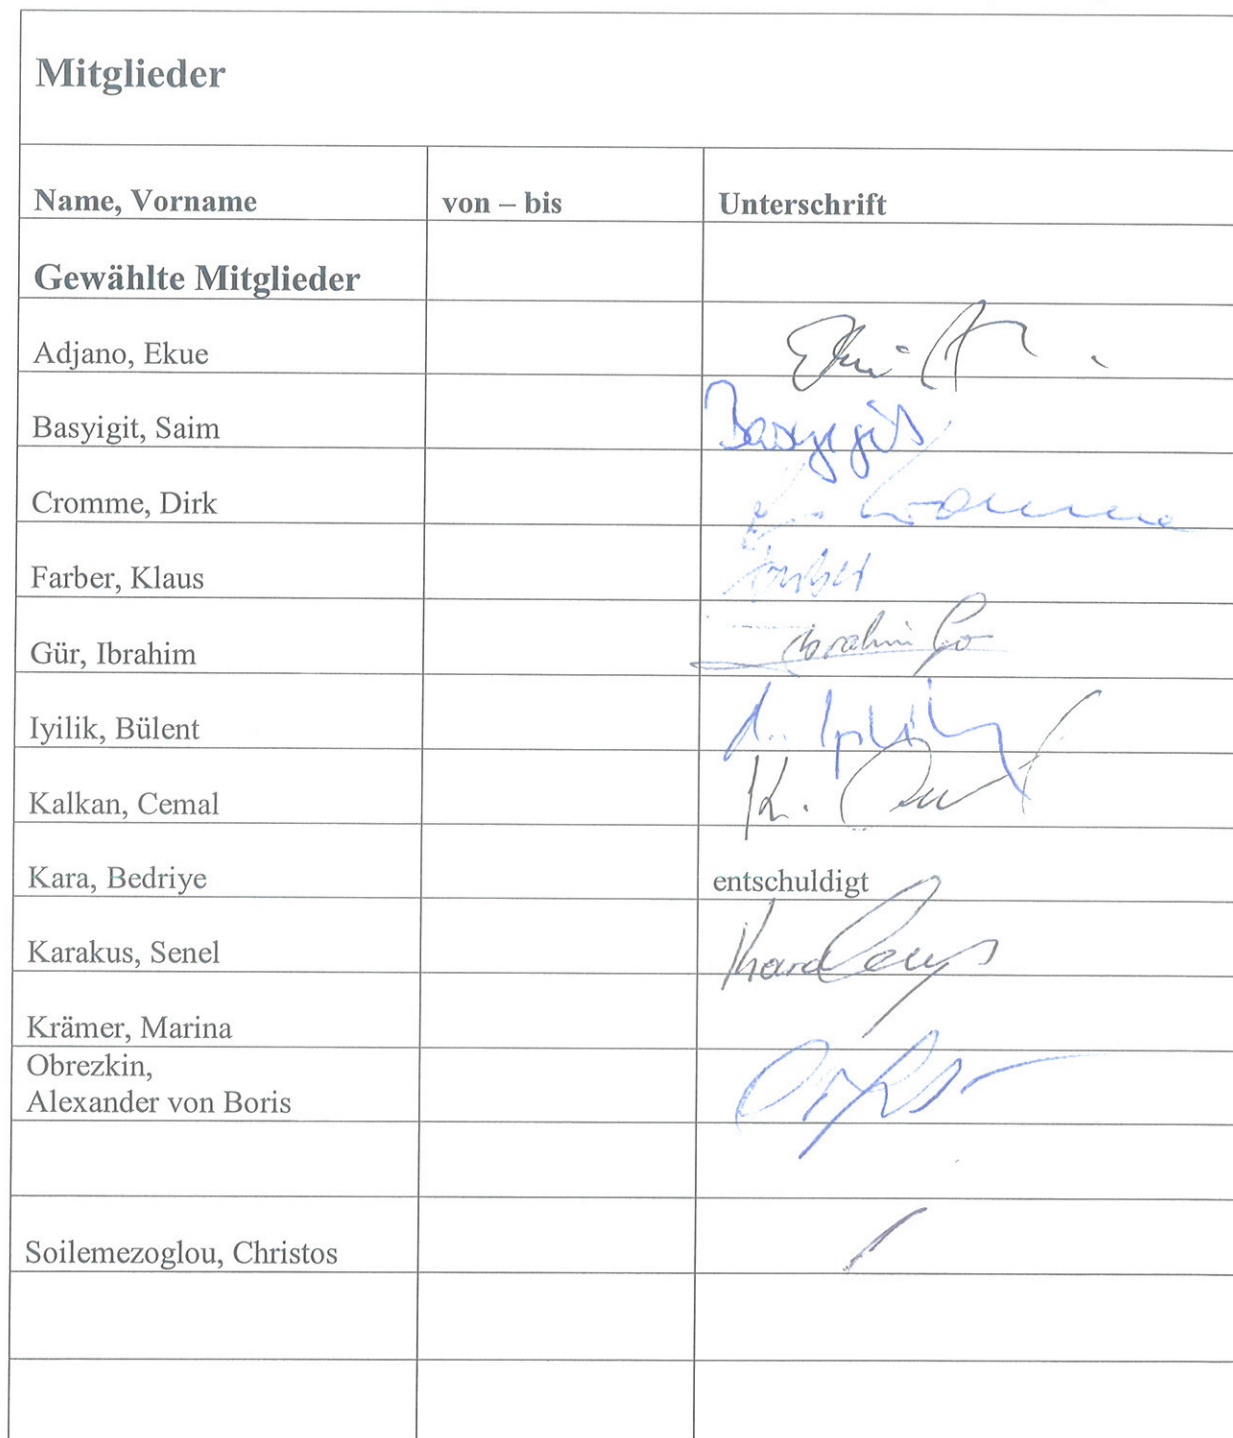 Mitglieder
Name, Vorname von – bis Unterschrift
Gewählte Mitglieder
Adjano, Ekue
Basyigit, Saim Basyigit
Cromme, Dirk Cromme
Farber, Klaus Farber
Gür, Ibrahim Ibrahim
Iyilik, Bülent
Kalkan, Cemal K.
Kara, Bedriye entschuldigt
Karakus, Senel
Krämer, Marina
Obrezkin,
Alexander von Boris
Soilemezoglou, Christos